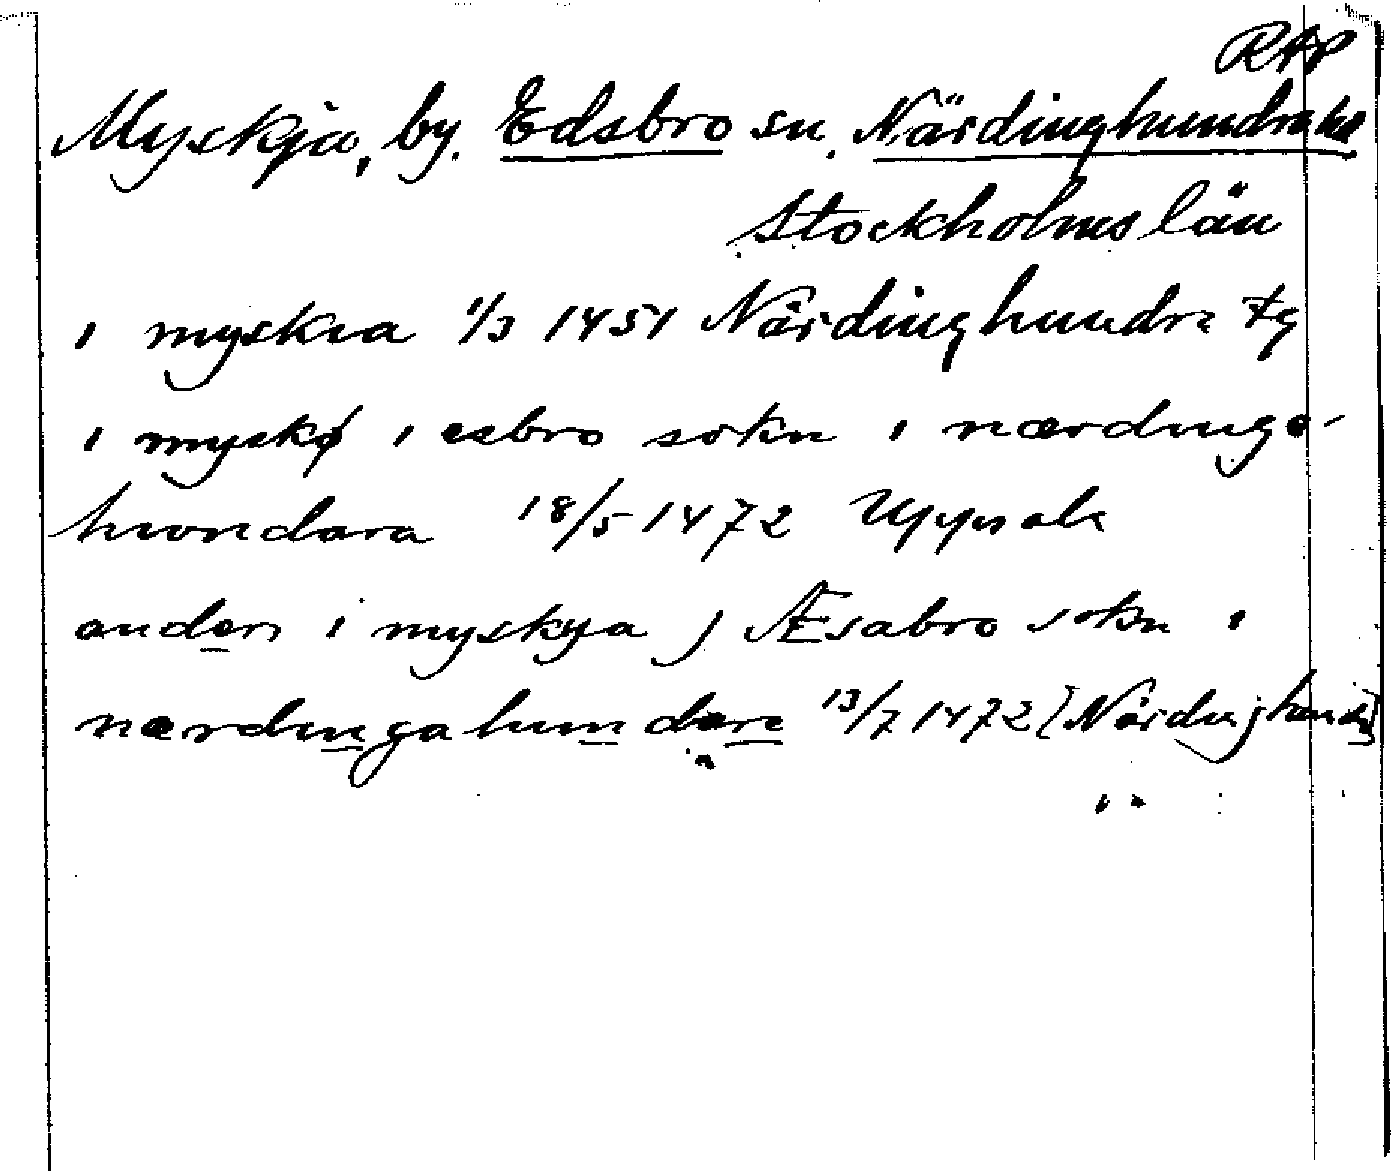 RAP
Myskja, by. Edsbro sn. Närdinghundra hd
Stockholms län
i myskia 1/3 1451 Närdinghundra tg
i myskø i esbro sokn i nærdinge-
hwndara 18/5 1472 Uppsala
anders i myskya j Æsabro sokn i
nærdinga hundere 13/7 1472 [Närdinghundr]